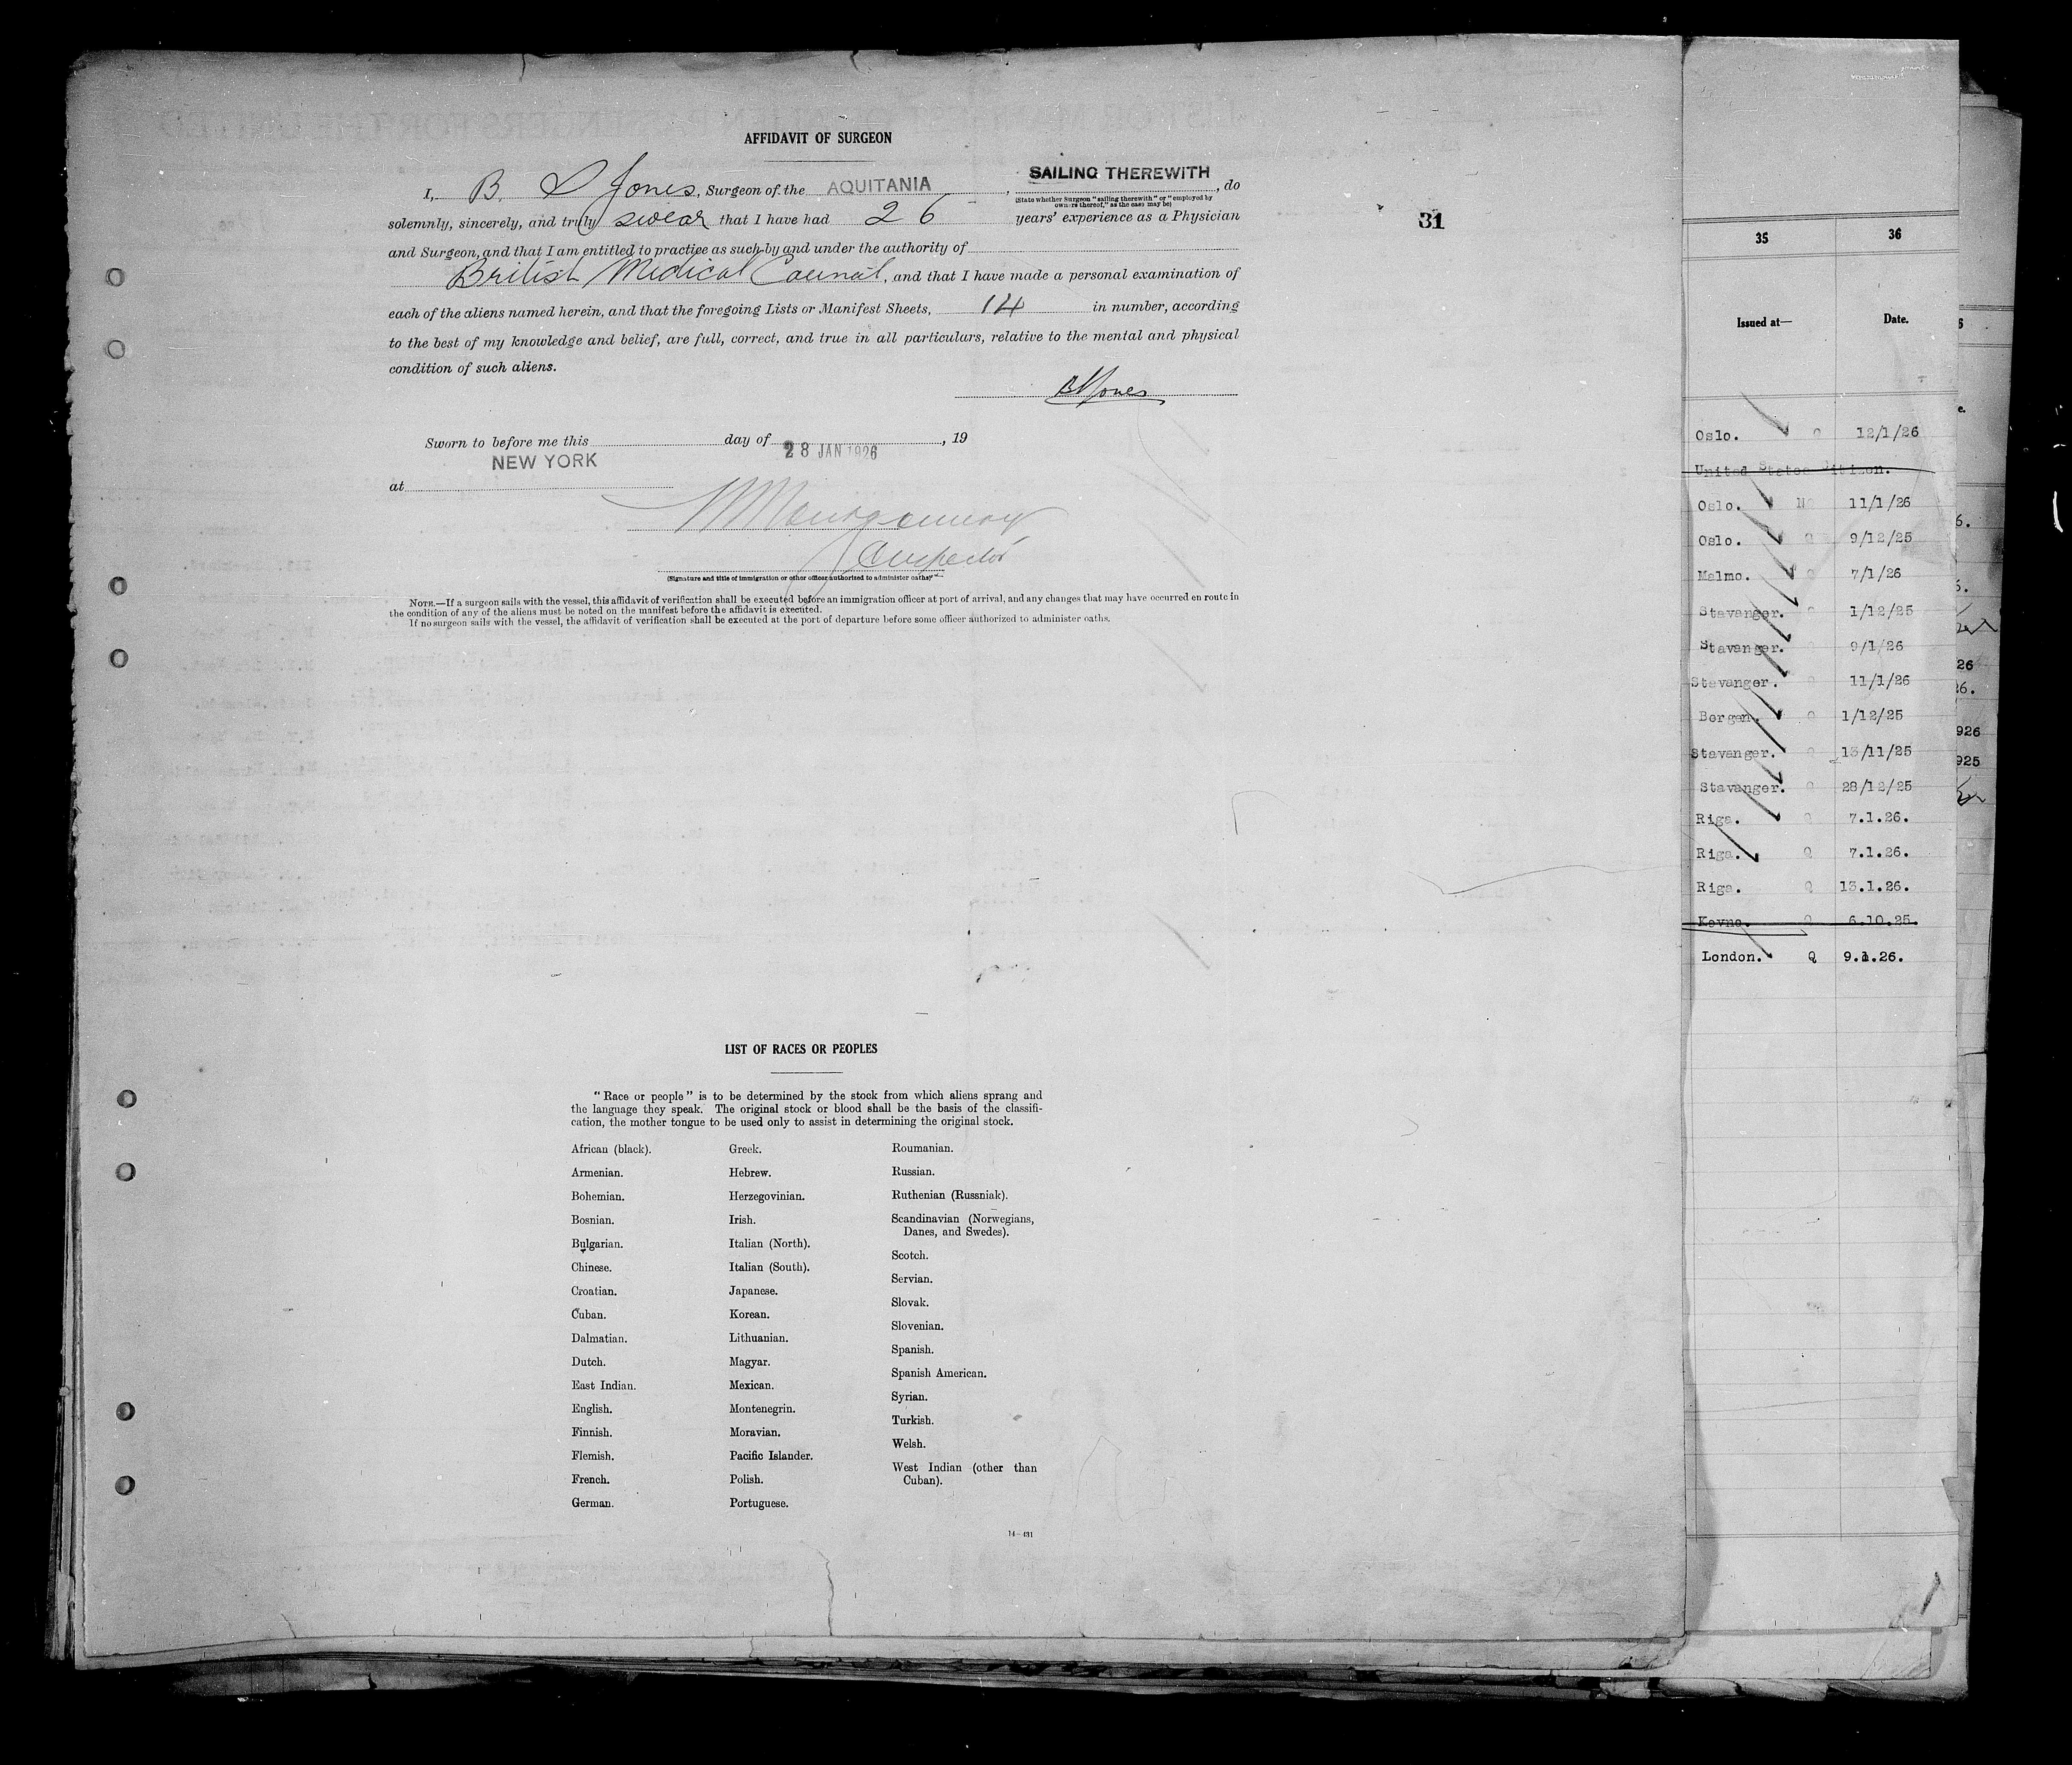 AFFIDAVIT OF SURGEON
I, B. S Jones, Surgeon of the AQUITANIA, SAILING THEREWITH, do
(State whether Surgeon "sailing therewith" or "employed by
owners thereof," as the case may be)
solemnly, sincerely, and truly swear that I have had 26 years' experience as a Physician
and Surgeon, and that I am entitled to practice as such by and under the authority of
British Medical Council, and that I have made a personal examination of
each of the aliens named herein, and that the foregoing Lists or Manifest Sheets, 14 in number, according
to the best of my knowledge and belief, are full, correct, and true in all particulars, relative to the mental and physical
condition of such aliens.
BSJones
Sworn to before me this day of 28 JAN 1926, 19
NEW YORK
at
Montgomery
Inspector
(Signature and title of immigration or other officer authorized to administer oaths)
NOTE.—If a surgeon sails with the vessel, this affidavit of verification shall be executed before an immigration officer at port of arrival, and any changes that may have occurred en route in
the condition of any of the aliens must be noted on the manifest before the affidavit is executed.
If no surgeon sails with the vessel, the affidavit of verification shall be executed at the port of departure before some officer authorized to administer oaths.
31
LIST OF RACES OR PEOPLES
"Race or people" is to be determined by the stock from which aliens sprang and
the language they speak. The original stock or blood shall be the basis of the classifi-
cation, the mother tongue to be used only to assist in determining the original stock.
African (black).
Armenian.
Bohemian.
Bosnian.
Bulgarian.
Chinese.
Croatian.
Cuban.
Dalmatian.
Dutch.
East Indian.
English.
Finnish.
Flemish.
French.
German.
Greek.
Hebrew.
Herzegovinian.
Irish.
Italian (North).
Italian (South).
Japanese.
Korean.
Lithuanian.
Magyar.
Mexican.
Montenegrin.
Moravian.
Pacific Islander.
Polish.
Portuguese.
Roumanian.
Russian.
Ruthenian (Russniak).
Scandinavian (Norwegians,
Danes, and Swedes).
Scotch.
Servian.
Slovak.
Slovenian.
Spanish.
Spanish American.
Syrian.
Turkish.
Welsh.
West Indian (other than
Cuban).
14—431
35 36
Issued at— Date.
Oslo. Q 12/1/26
United States Citizen.
Oslo. NQ 11/1/26
Oslo. Q 9/12/25
Malmo. Q 7/1/26
Stavanger. Q 1/12/25
Stavanger. Q 9/1/26
Stavanger. Q 11/1/26
Bergen. Q 1/12/25
Stavanger. Q 13/11/25
Stavanger. Q 28/12/25
Riga. Q 7.1.26.
Riga. Q 7.1.26.
Riga. Q 13.1.26.
Kovno. Q 6.10.25.
London. Q 9.1.26.
6.
26
26.
926
925